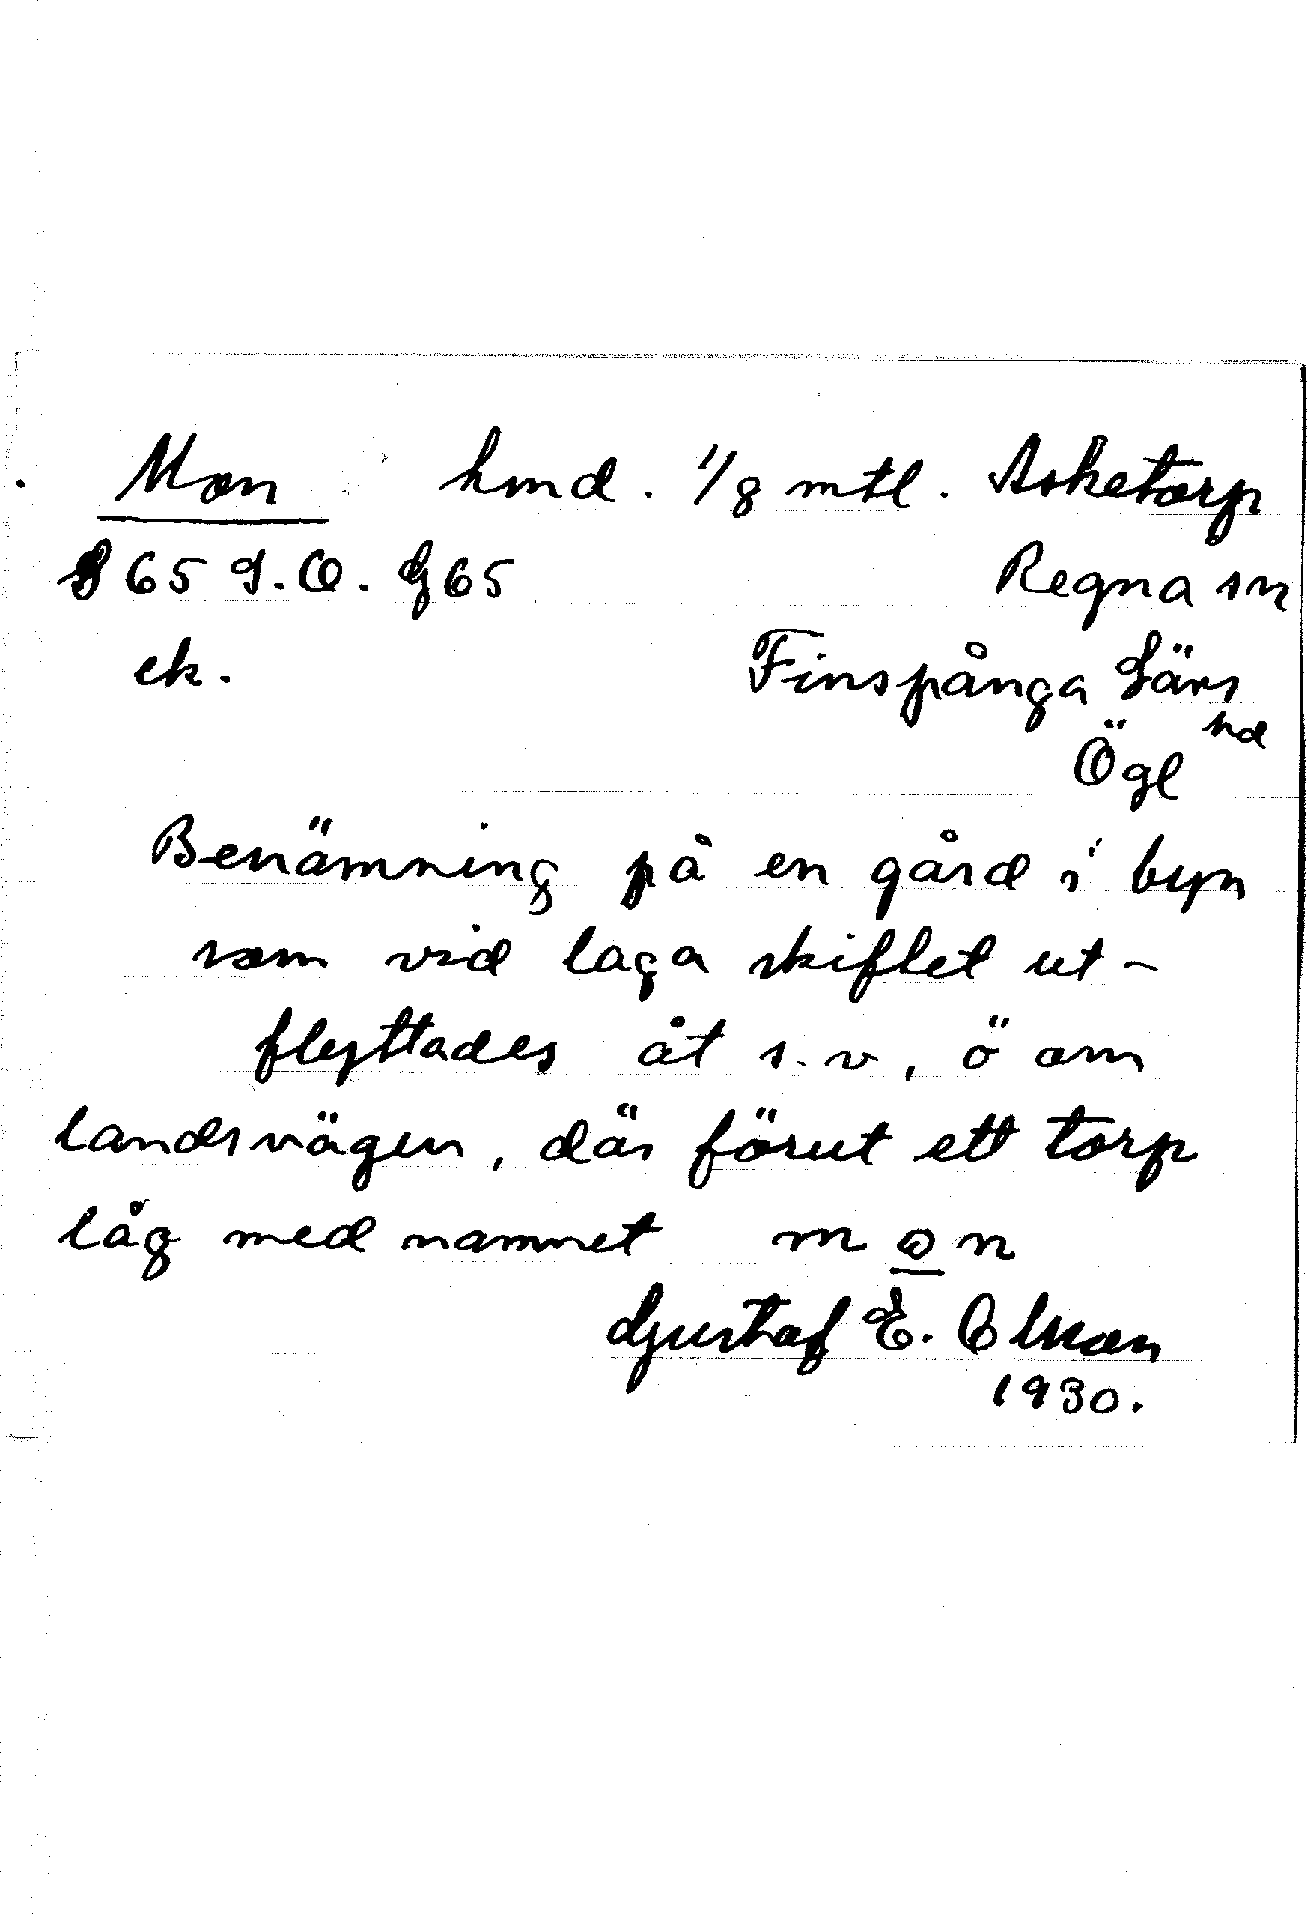 Mon hmd. 1/8 mtl. Asketorp
g 65 S.O. g 65 Regna sn
ek. Finspånga Läns
hd
Ögl
Benämning på en gård i byn
som vid laga skiftet ut-
flyttades åt s.v, ö om
landsvägen, där förut ett torp
låg med namnet mon
Gustaf E. Olsson
1930.